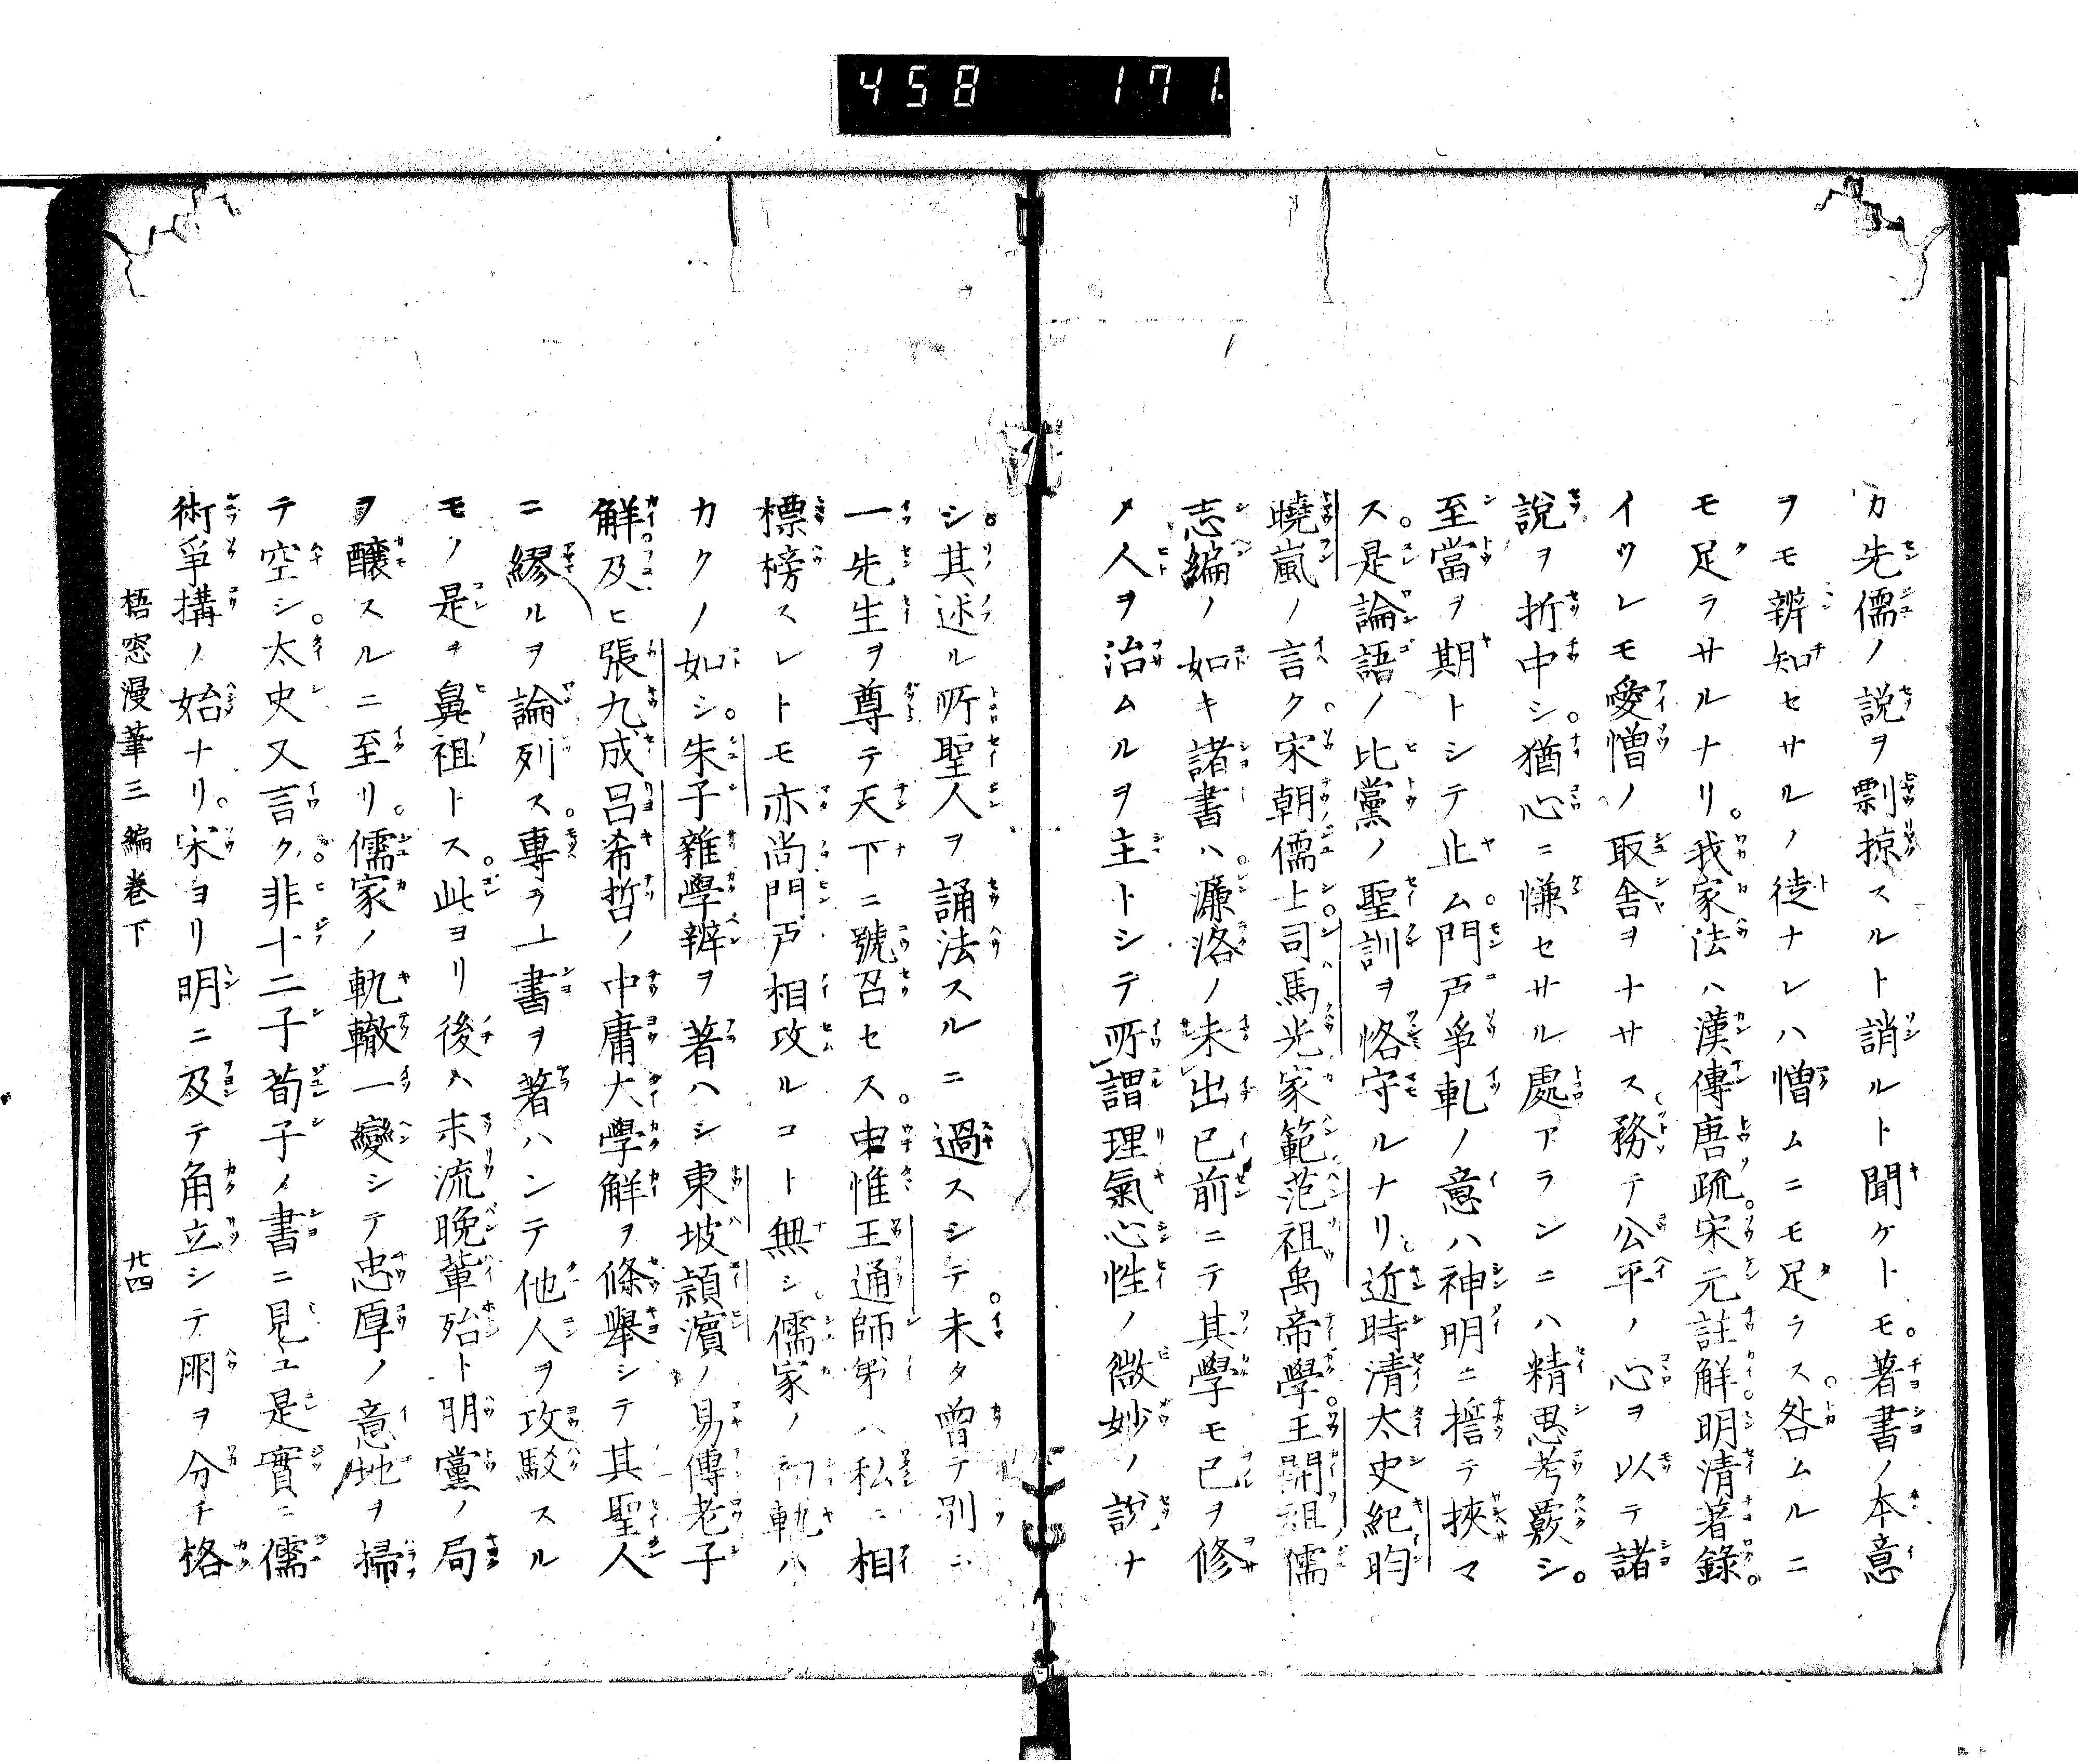 458 171
カ先儒ノ説ヲ剽掠スルト誚ルト聞ケトモ。著書ノ本意
ヲモ辨知セサルノ徒ナレハ憎ムニモ足ラス。咎ムルニ
モ足ラサルナリ。我家法ハ漢傳唐疏。宋元註解。明清著錄。
イツレモ愛憎ノ取舎ヲナサス。務テ公平ノ心ヲ以テ諸
說ヲ折中シ。猶心ニ慊セサル處アランニハ精思考覈シ。
至當ヲ期トシテ止ム。門戸爭軋ノ意ハ神明ニ誓テ挾マ
ス。是論語ノ比黨ノ聖訓ヲ恪守ルナリ。近時清太史紀昀
曉嵐ノ言ク。宋朝儒士。司馬光家範范祖禹帝學。王開祖儒
志編ノ如キ諸書ハ。濂洛ノ未出已前ニテ其學モ已ヲ修
メ人ヲ治ムルヲ主トシテ所謂理氣心性ノ微妙ノ說ナ
シ。其述ル所聖人ヲ誦法スルニ過スシテ。未タ曾テ別ニ
一先生ヲ尊テ天下ニ號召セス。中惟王通師弟ハ私ニ相
標榜スレトモ亦尚門戸相攻ルコト無シ。儒家ノ初軌ハ
カクノ如シ。朱子雜學辨ヲ著ハシ東坡潁濱ノ易傳老子
解及ヒ張九成呂希哲ノ中庸大學解ヲ條舉シテ其聖人
ニ繆ルヲ論列ス。專ラ一書ヲ著ハンテ他人ヲ攻駁スル
モノ是ヲ鼻祖トス。此ヨリ後ハ末流晚輩殆ト朋黨ノ局
ヲ釀スルニ至リ。儒家ノ軌轍一變シテ忠厚ノ意地ヲ掃
テ空シ。太史又言ク。非十二子荀子ノ書ニ見ユ是實ニ儒
術爭搆ノ始ナリ。宋ヨリ明ニ及テ角立シテ朋ヲ分チ格
梧窓漫筆三編卷下 廿四